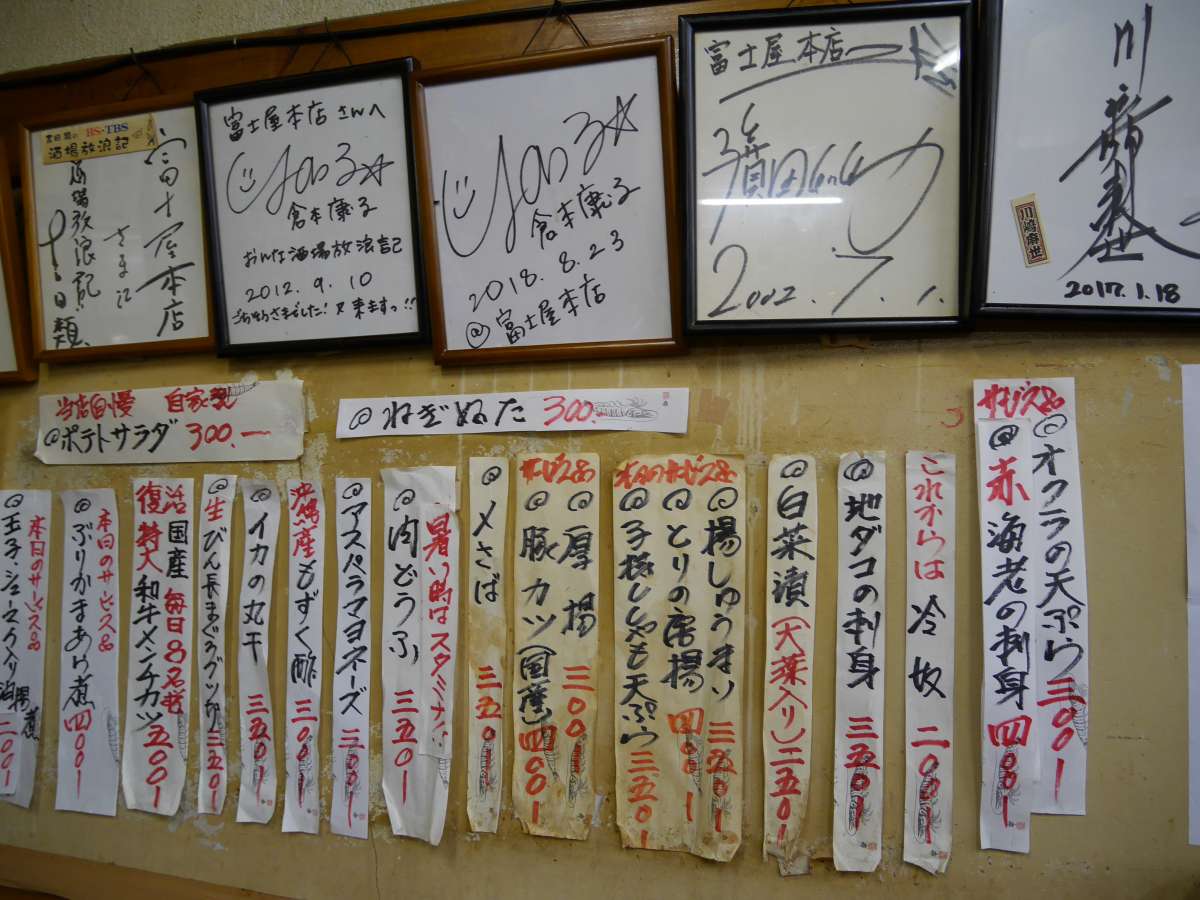 富士屋本店
さまに
酒場放浪記
吉田類
吉田類の BS-TBS
酒場放浪記
富士屋本店さんへ
倉本康子
おんな酒場放浪記
2012.9.10
ごちそうさまでした！又来ますっ!!
倉本康子
2018.8.23
@富士屋本店
富士屋本店
2002.7.1.
川﨑麻世
川﨑麻世
2017.1.18
当店自慢 自家製
@ポテトサラダ 300.—
@ねぎぬた 300.-
サービス品
@オクラの天ぷら 三〇〇-
@赤海老の刺身 四〇〇-
これからは冷奴 二〇〇-
@地ダコの刺身 三五〇-
@白菜漬(大葉入り)二五〇-
本日のサービス品
@揚しゅうまい 三五〇-
@とりの唐揚 四〇〇-
@子持ししゃも天ぷら 三五〇-
サービス品
@厚揚 三〇〇-
@豚カツ(国産)四〇〇-
@〆さば 三五〇
暑い時はスタミナ!!
@肉どうふ 三五〇-
@アスパラマヨネーズ 三〇〇-
沖縄産もずく酢 三〇〇-
@イカの丸干 三五〇-
@生びん長まぐろブツ切 三五〇-
国産 毎日8名者
復活 特大和牛メンチカツ 五〇〇-
本日のサービス品
@ぶりかまあら煮 四〇〇-
本日のサービス品